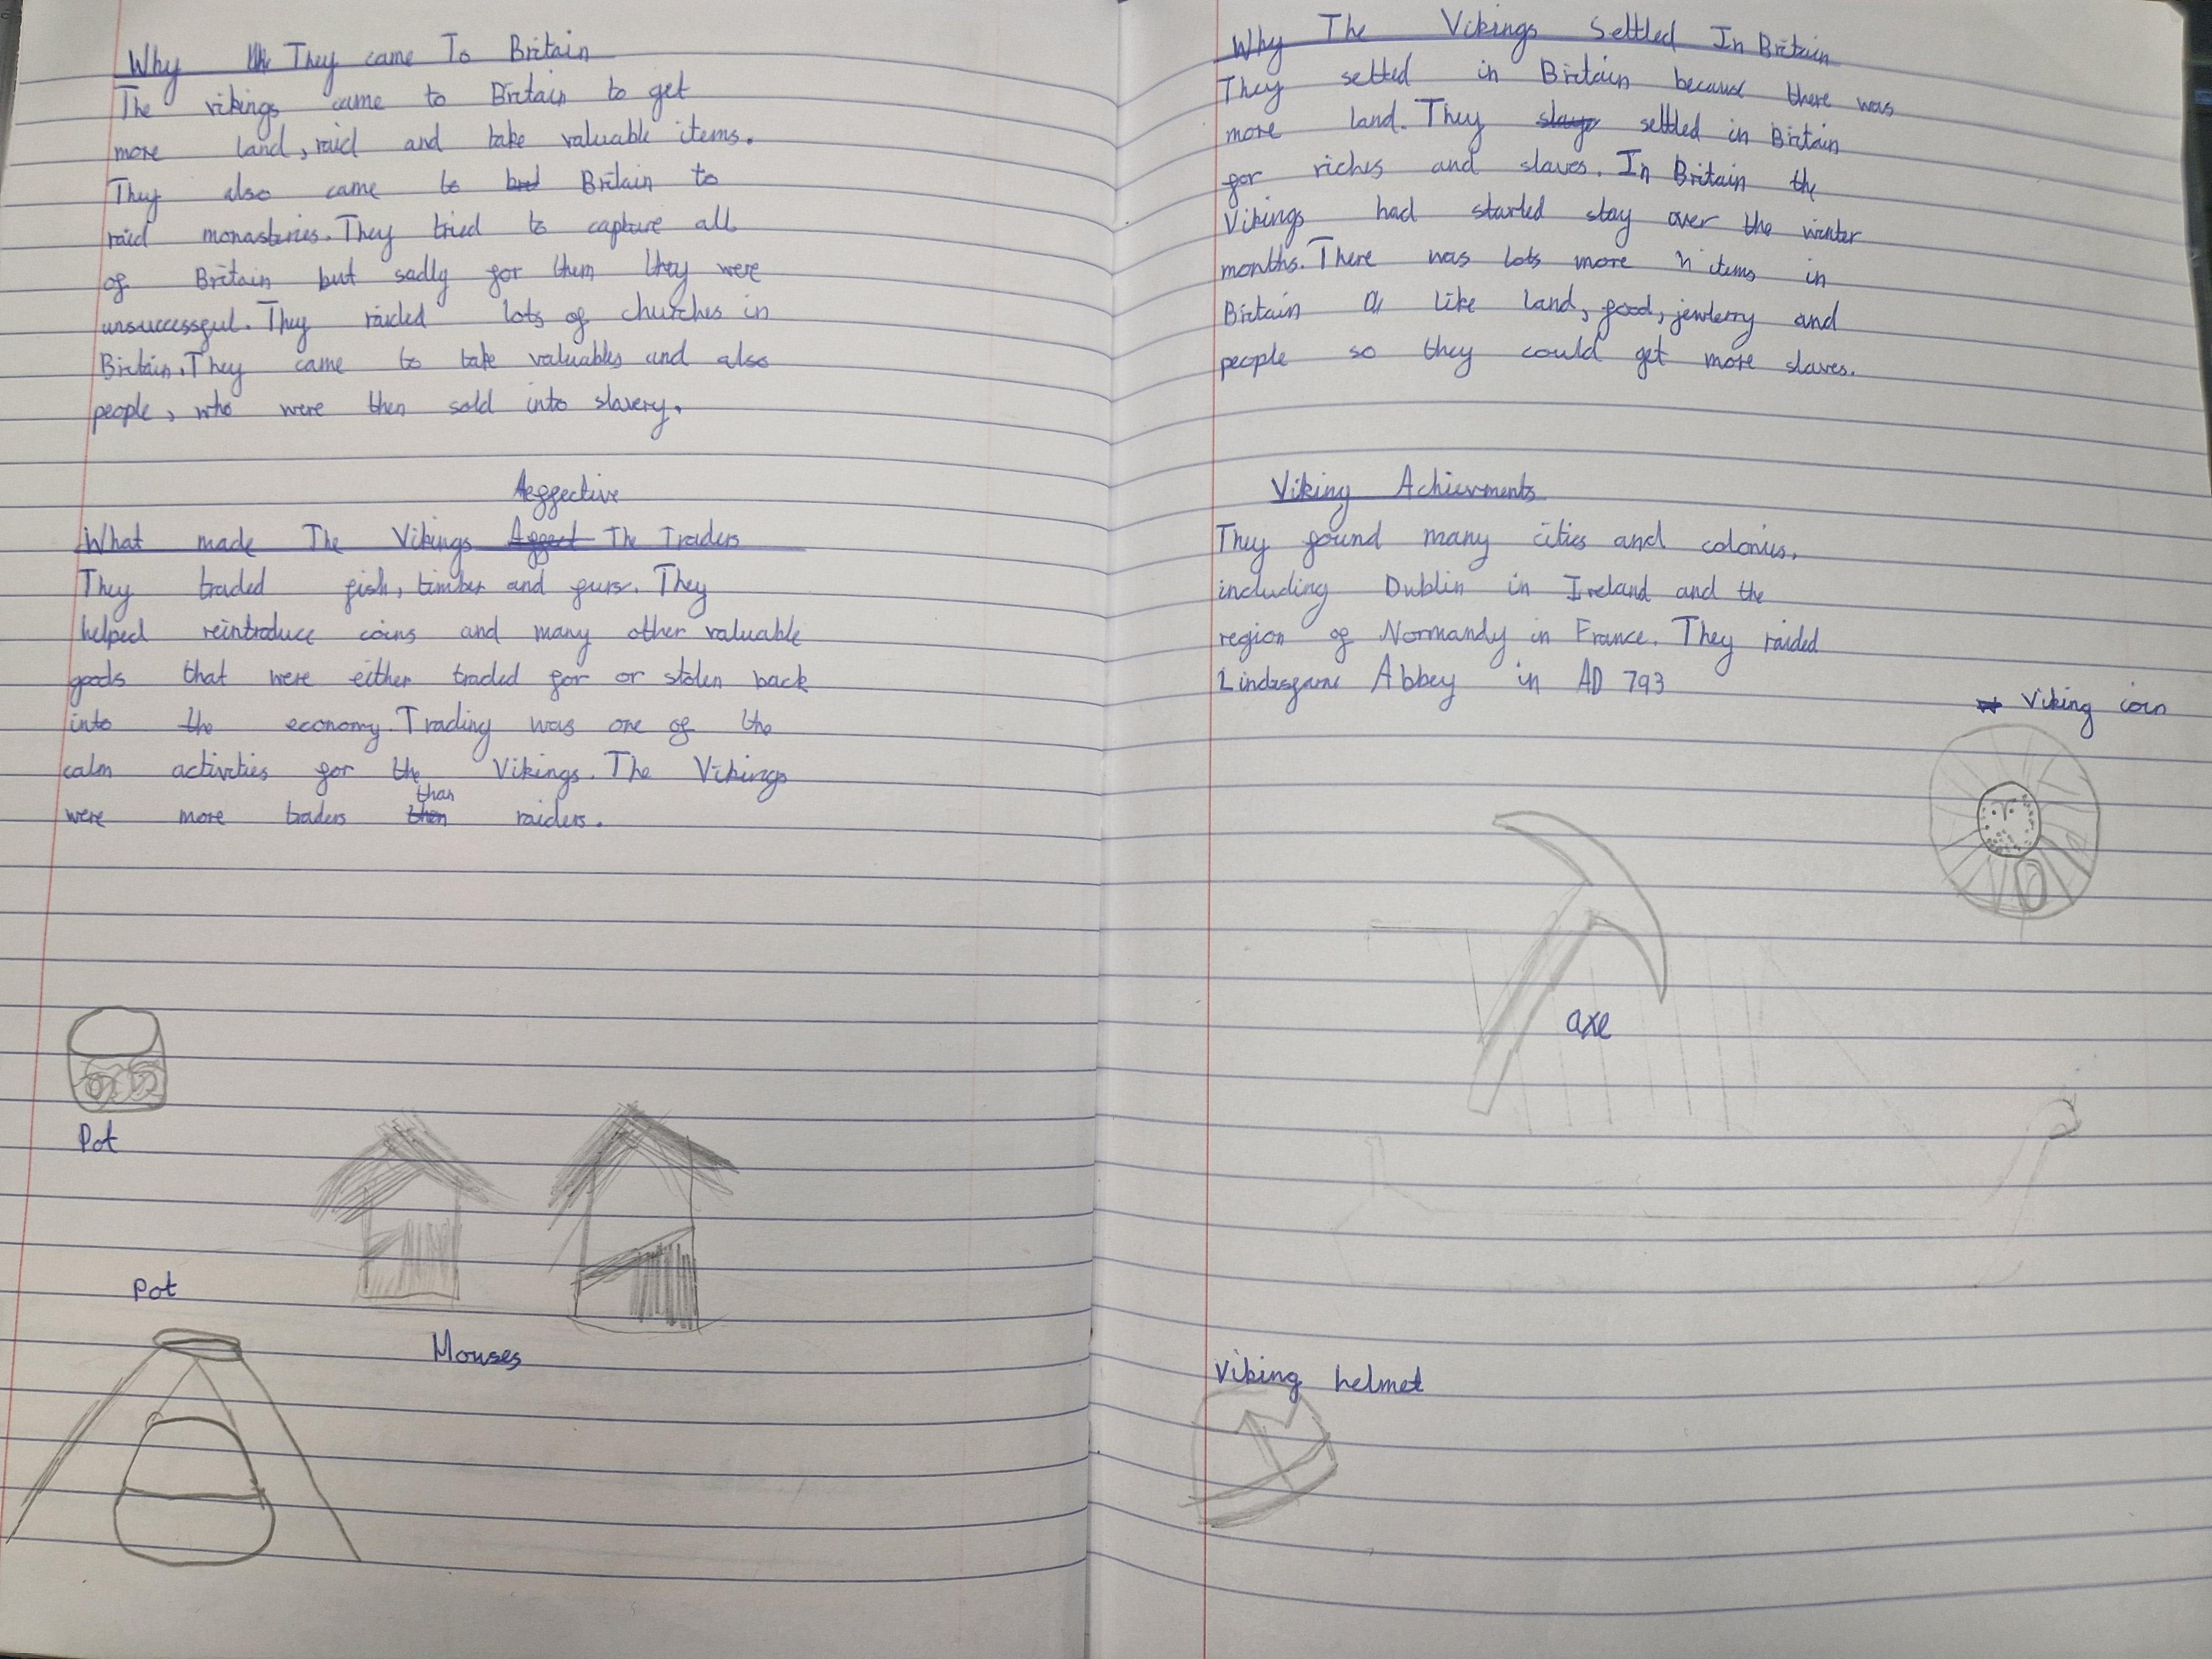 Why They came To Britain
The vikings came to Britain to get
more land, raid and take valuable items.
They also came to Britain to
raid monasteries. They tried to capture all
of Britain but sadly for them they were
unsuccessful. They raided lots of churches in
Britain. They came to take valuables and also
people, who were then sold into slavery.
Aeffective
What made The Vikings Affect The Traders
They traded fish, timber and furs. They
helped reintroduce coins and many other valuable
goods that were either traded for or stolen back
into the economy. Trading was one of the
calm activities for the Vikings. The Vikings
than
were more traders then raiders.
Pot
Pot
Houses
Why The Vikings Settled In Britain
They setted in Britain because there was
more land. They settled in Britain
for riches and slaves. In Britain the
Vikings had started stay over the winter
months. There was lots more items in
Britain like land, food, jewlerry and
people so they could get more slaves.
Viking Achievments
They found many cities and colonies,
including Dublin in Ireland and the
region of Normandy in France. They raided
Lindesfarne Abbey in AD 793
Viking coin
axe
Viking helmet